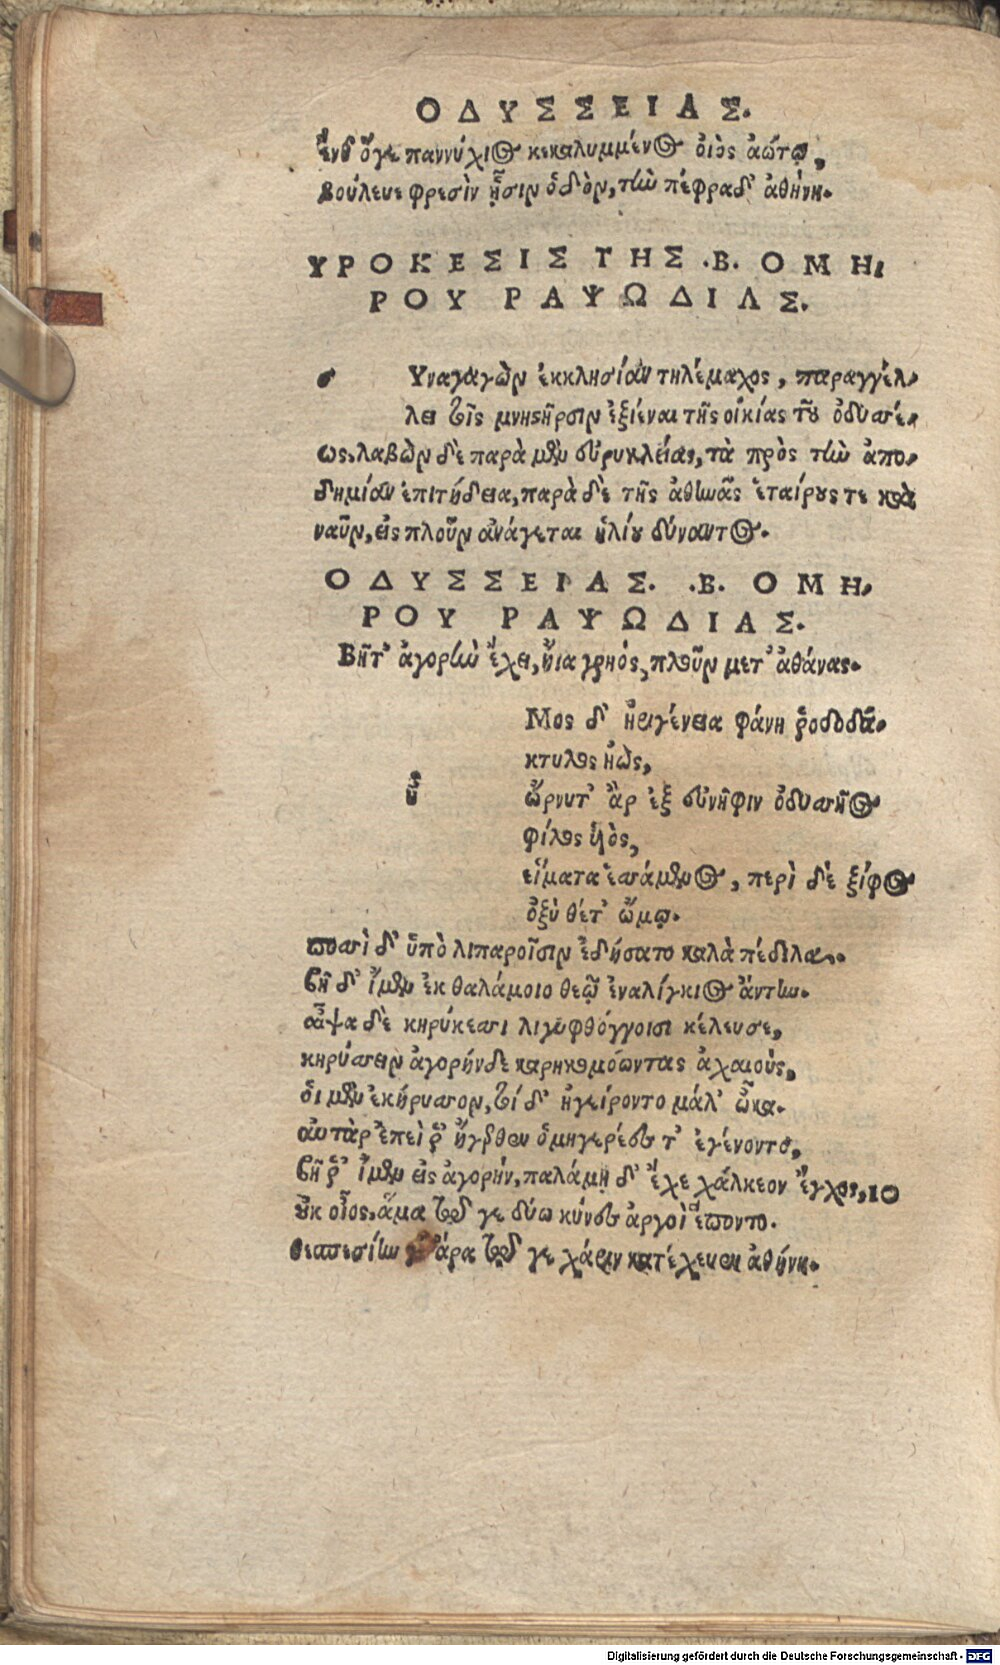 ΟΔΥΣΣΕΙΑΣ.
ἔνθ ὅγε παννύχιος κεκαλυμμένος οἰὸς ἀώτῳ,
Βούλευε φρεσὶν ᾗσιν ὁδὸν, τὴν πέφραδ' ἀθήνη.
ΥΡΟΚΕΣΙΣ ΤΗΣ .Β. ΟΜΗ,
ΡΟΥ ΡΑΨΩΔΙΑΣ.
σ Υναγαγὼν ἐκκλησίαν τηλέμαχος, παραγγέλ,
λει τοῖς μνηστῆρσιν ἐξιέναι τῆς οἰκίας τοῦ ὀδυσσέ,
ως. λαβὼν δὲ παρὰ μὲν εὐρυκλείας, τὰ πρὸς τὴν ἀπο,
δημίαν ἐπιτήδεια, παρὰ δὲ τῆς ἀθηνᾶς ἑταίρους τε καὶ
ναῦν, εἰς πλοῦν ἀνάγεται ἡλίου δύναντος.
ΟΔΥΣΣΕΙΑΣ. .Β. ΟΜΗ,
ΡΟΥ ΡΑΨΩΔΙΑΣ.
Βῆτ' ἀγορὴν ἔχει, ἤια γρηός, πλοῦν μετ' ἀθάνας.
Μος δ' ἠριγένεια φάνη ῥοδοδά,
κτυλος ἠὼς,
ὤρνυτ' ἂρ ἐξ εὐνῆφιν ὀδυσσῆος
φίλος υἱὸς,
εἵματα ἑσσάμενος, περὶ δὲ ξίφος
ὀξὺ θέτ' ὤμῳ.
ποσσὶ δ' ὑπὸ λιπαροῖσιν ἐδήσατο καλὰ πέδιλα.
βῆ δ' ἴμεν ἐκ θαλάμοιο θεῷ ἐναλίγκιος ἄντην.
αἶψα δὲ κηρύκεσσι λιγυφθόγγοισι κέλευσε,
κηρύσσειν ἀγορήνδε καρηκομόωντας ἀχαιούς,
ὁι μὲν ἐκήρυσσον, τοί δ' ἠγείροντο μάλ' ὦκα.
αὐτὰρ ἐπεί ῥ' ἤγερθεν ὁμηγερέες τ' ἐγένοντο,
βῆ ῥ' ἴμεν εἰς ἀγορὴν, παλάμῃ δ' ἔχε χάλκεον ἔγχος, 10
οὐκ οἶος. ἅμα τῷ γε δύω κύνες ἀργοὶ ἕποντο.
θεσπεσίην ἄρα τῷ γε χάριν κατέχευεν ἀθήνη.
Digitalisierung gefördert durch die Deutsche Forschungsgemeinschaft - DFG